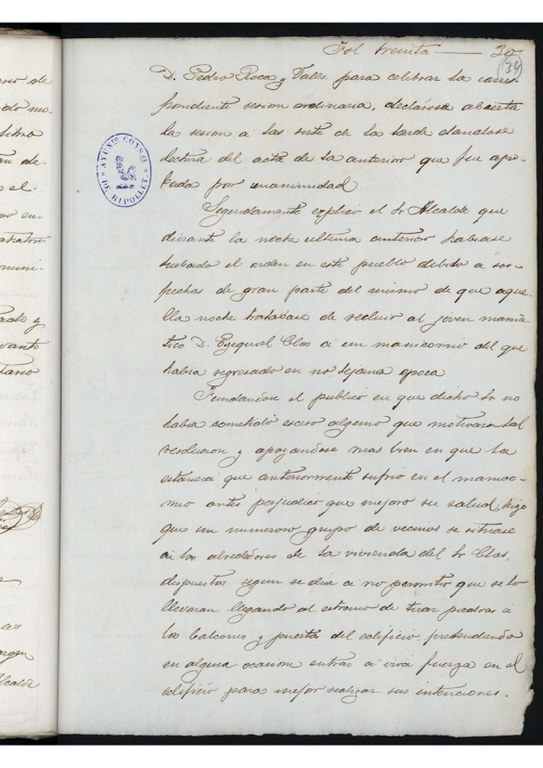 Fol treinta — 30
(34)
D. Pedro Roca y Valls para celebrar la corres-
pondiente sesion ordinaria, declárosa abierta
la sesion a las siete de la tarde dandose
lectura del acta de la anterior que fue apro-
bada por unanimidad
Seguidamente esplicó el Sr Alcalde que
durante la noche ultima anterior habiase
turbado el orden en este pueblo debido a sos-
pechas de gran parte del mismo de que aque-
lla noche tratabase de recluir al joven mania-
tico D. Ezequiel Clos a un manicomio del que
habia regresado en no lejana epoca
Fundandose el publico en que dicho Sr no
habia cometido esceso alguno que motivara tal
resolucion y apoyandose mas bien en que la
estancia que anteriormente sufrio en el manico-
mio antes perjudico que mejoro su salud, hizo
que un numeroso grupo de vecinos se situase
a los alrededores de la vivienda del Sr Clos,
dispuestos segun se dice a no permitir que se lo
llevaran llegando al estremo de tirar piedras a
los balcones y puerta del edificio, pretendiendo
en alguna ocasion entrar a viva fuerza en el
edificio para mejor realizar sus intenciones.
AYUNTº CONSAL
DE RIPOLLET